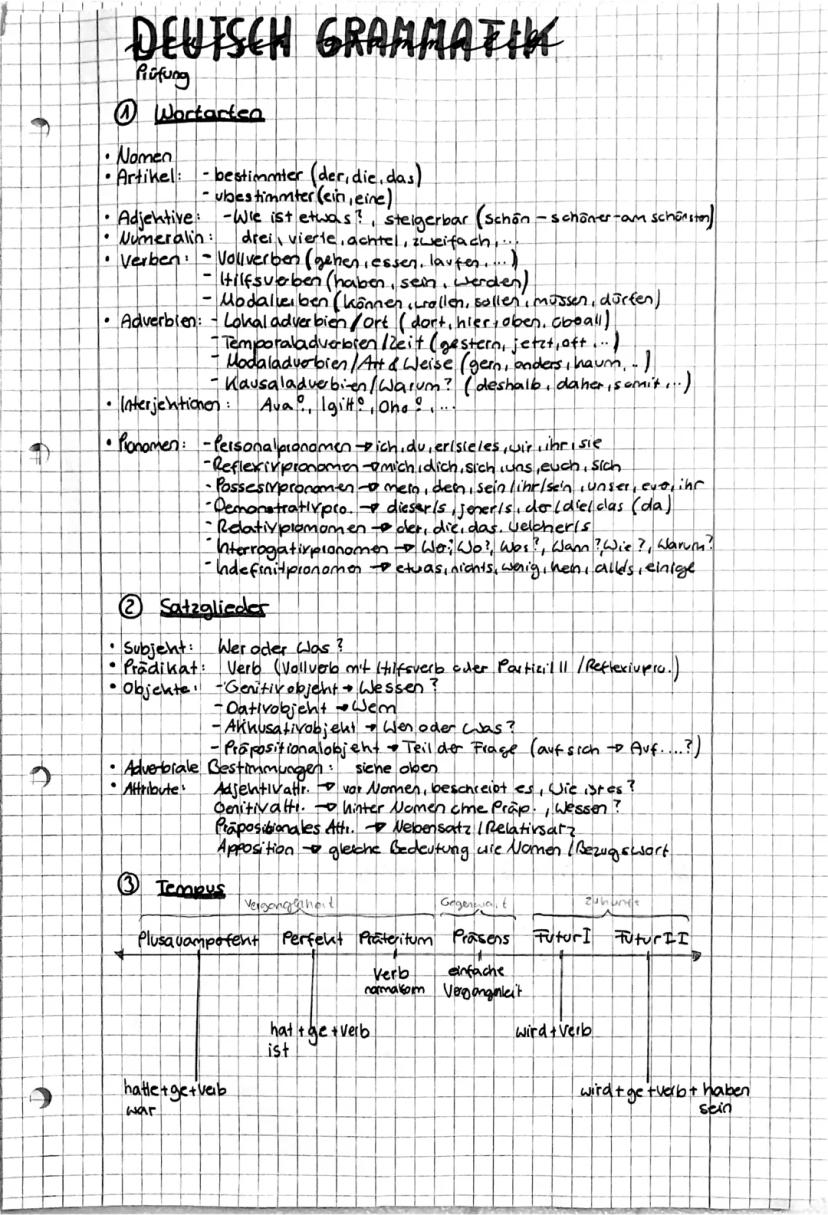 DEUTSCH GRAMMATIK
Prüfung
① Wortarten
• Nomen
• Artikel: - bestimmter (der, die, das)
- ubestimmter (ein, eine)
• Adjektive: - Wie ist etwas?, steigerbar (schön - schöner - am schönsten)
• Numeralin: drei, vierte, achtel, zweifach, ...
• Verben: - Vollverben (gehen, essen, laufen, ...)
- Hilfsverben (haben, sein, werden)
- Modalverben (können, wollen, sollen, müssen, dürfen)
• Adverbien: - Lokaladverbien/Ort (dort, hier, oben, überall)
- Temporaladverbien/Zeit (gestern, jetzt, oft ...)
- Modaladverbien/Art & Weise (gern, anders, kaum, ..)
- Kausaladverbien/Warum? (deshalb, daher, somit, ...)
• Interjektionen: Aua!, Igitt!, Oho!, ...
• Pronomen: - Personalpronomen → ich, du, er/sie/es, wir, ihr, sie
- Reflexivpronomen → mich, dich, sich, uns, euch, sich
- Possesivpronomen → mein, dein, sein/ihr/sein, unser, euer, ihr
- Demonstrativpro. → dieser/s, jener/s, der/die/das (da)
- Relativpronomen → der, die, das, welcher/s
- Interrogativpronomen → Wer, Wo?, Was?, Wann?, Wie?, Warum?
- Indefinitpronomen → etwas, nichts, wenig, kein, alles, einige
② Satzglieder
• Subjekt: Wer oder Was?
• Prädikat: Verb (Vollverb mit Hilfsverb oder Partizil II / Reflexivpro.)
• Objekte: - Genitivobjekt → Wessen?
- Dativobjekt → Wem
- Akkusativobjekt → Wen oder Was?
- Präpositionalobjekt → Teil der Frage (auf sich → Auf ...?)
• Adverbiale Bestimmungen: siehe oben
• Attribute: Adjektivattr. → vor Nomen, beschreibt es, Wie ist es?
Genitivattr. → hinter Nomen ohne Präp., Wessen?
Präpositionales Attr. → Nebensatz / Relativsatz
Apposition → gleiche Bedeutung wie Nomen / Bezugswort
③ Tempus
Vergangenheit Gegenwart Zukunft
Plusquamperfekt Perfekt Präteritum Präsens Futur I Futur II
Verb einfache
Vergangnheit
hat + ge + verb wird + verb
ist
hatte + ge + verb wird + ge + verb + haben
war sein